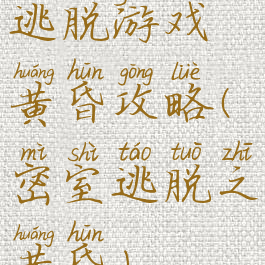 逃脱游戏
huáng hūn gōng lüè
黄昏攻略(
mì shì táo tuō zhī
密室逃脱之
huáng hūn
黄昏)